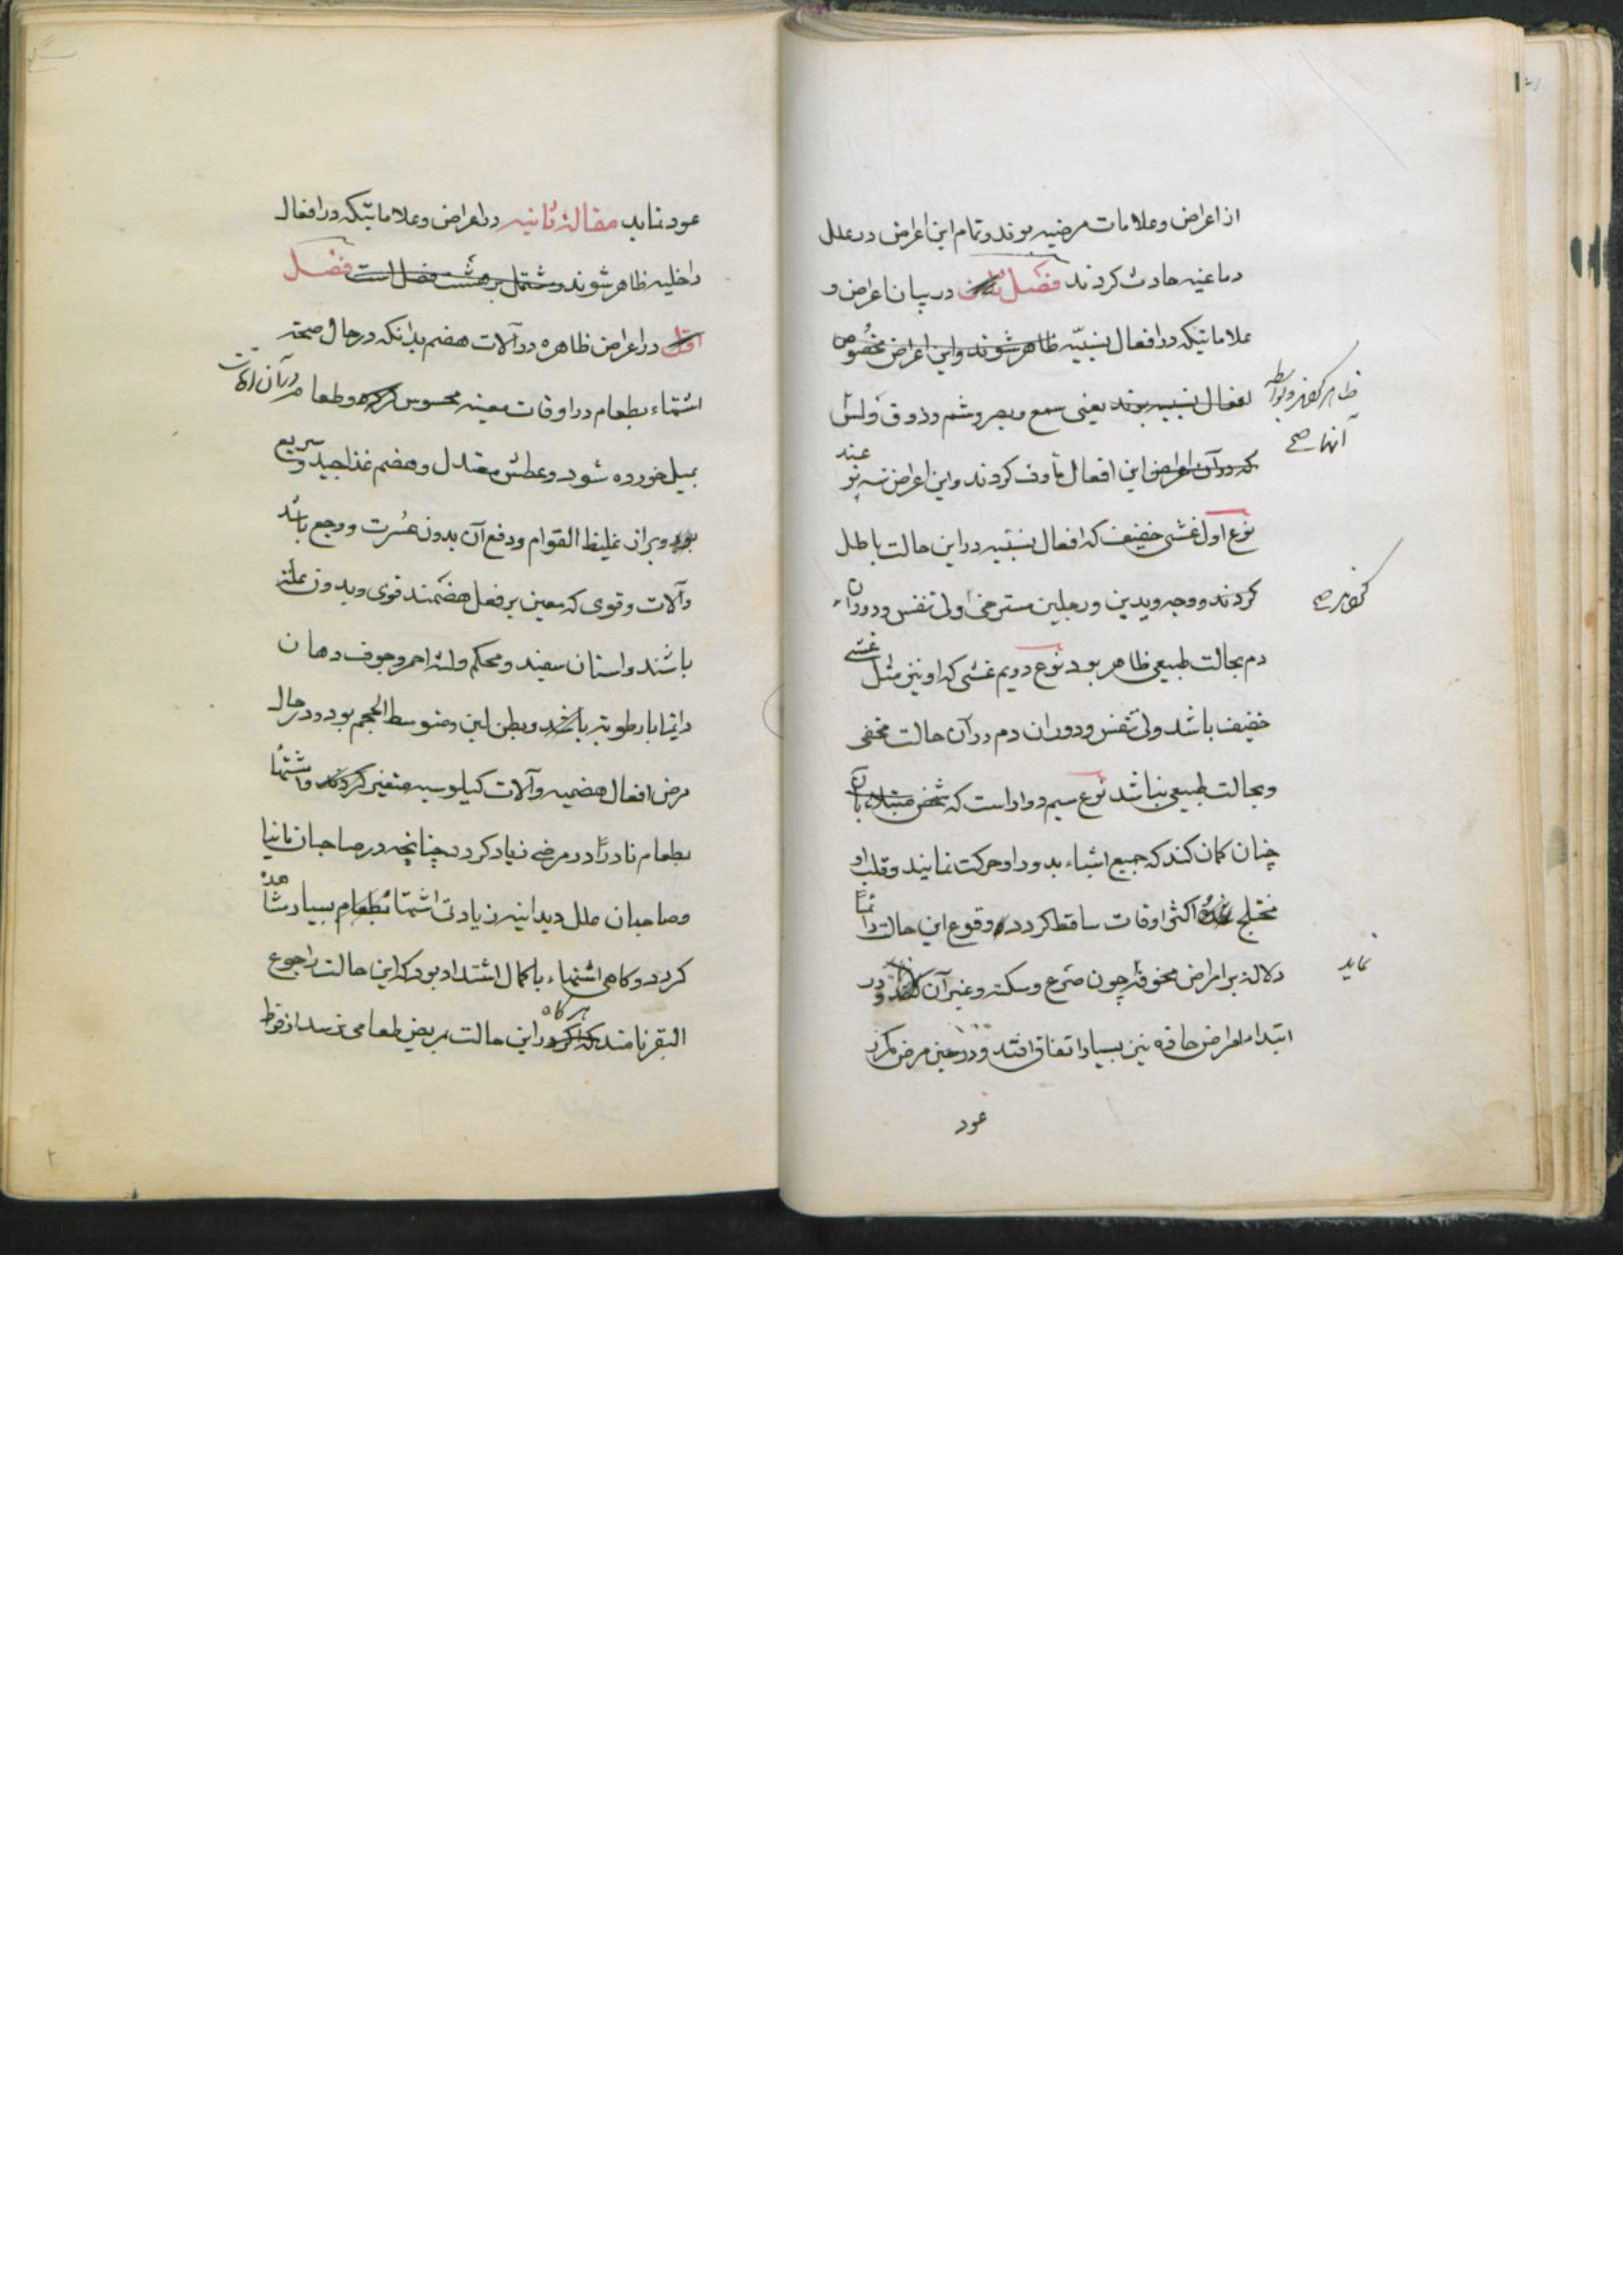 از اعراض و علامات مرضیه بوند و تمام این اعراض در علل
دماغیه حادث کردند فصل در بیان اعراض و
علاماتیکه در افعال نسبیّه ظاهر شوند و این اعراض مخصوص
افعال نسبیه بوند یعنی سمع و بصر و شم و ذوق و لمس
که در آن اعراض این افعال مأوف کردند و این اعراض سه نو
عند
نوع اول غشی خفیف که افعال نسبیه در این حالت باطل
کردند و وجه و یدین و رجلین مسترخی ولی تنفس و دوران
دم بحالت طبیعی ظاهر بود نوع دویم غشی که او نیز مثل غشی
خفیف باشد ولی تنفس و دوران دم در آن حالت مخفی
و بحالت طبیعی نباشد نوع سیم دوار است که شخص مبتلاء بآن
چنان کمان کند که جمیع اشیاء بدور او حرکت نمایند و قلب او
مختلج اکثر اوقات ساقط کردد وقوع این حالت دائماً
دلالة بر امراض مخوفه چون صرع و سکته و غیر آن و در
ابتداء امراض حاده نیز بسیار اتفاق افتد و در حین مرض مکرر
عود
ظاهر
آنها صح
نماید
عود نماید مقالهٔ ثانیه در اعراض و علاماتیکه در افعال
داخلیه ظاهر شوند و مشتمل بر هشت فصل است فصل
اول در اعراض ظاهره در آلات هضم بدانکه در حال صحة
اشتهاء بطعام در اوقات معینه محسوس کردد و طعام در آن اوقات
بمیل خورده شود و عطش معتدل و هضم غذا جید و سریع
بود و براز غلیظ القوام و دفع آن بدون عسرت و وجع باشد
و آلات و قوی که معین بر فعل هضمند قوی و بدون علة
باشند و اسنان سفید و محکم و لثه احمر و جوف دهان
دایما با رطوبة باشد و بطن لین و متوسط الحجم بود و در حال
مرض افعال هضمیه و آلات کیلوسیه متغیر کردند و اشتها
بطعام نادراً در مرضی زیاد کردد چنانچه در صاحبان مانیا
و صاحبان علل دیدانیه زیادتی اشتها بطعام بسیار مشاهده
کردد و کاهی اشتهاء با کمال اشتداد بود که این حالت را جوع
البقر نامند که اکر هرکاه در این حالت بمریض طعامی نرسد از فرط